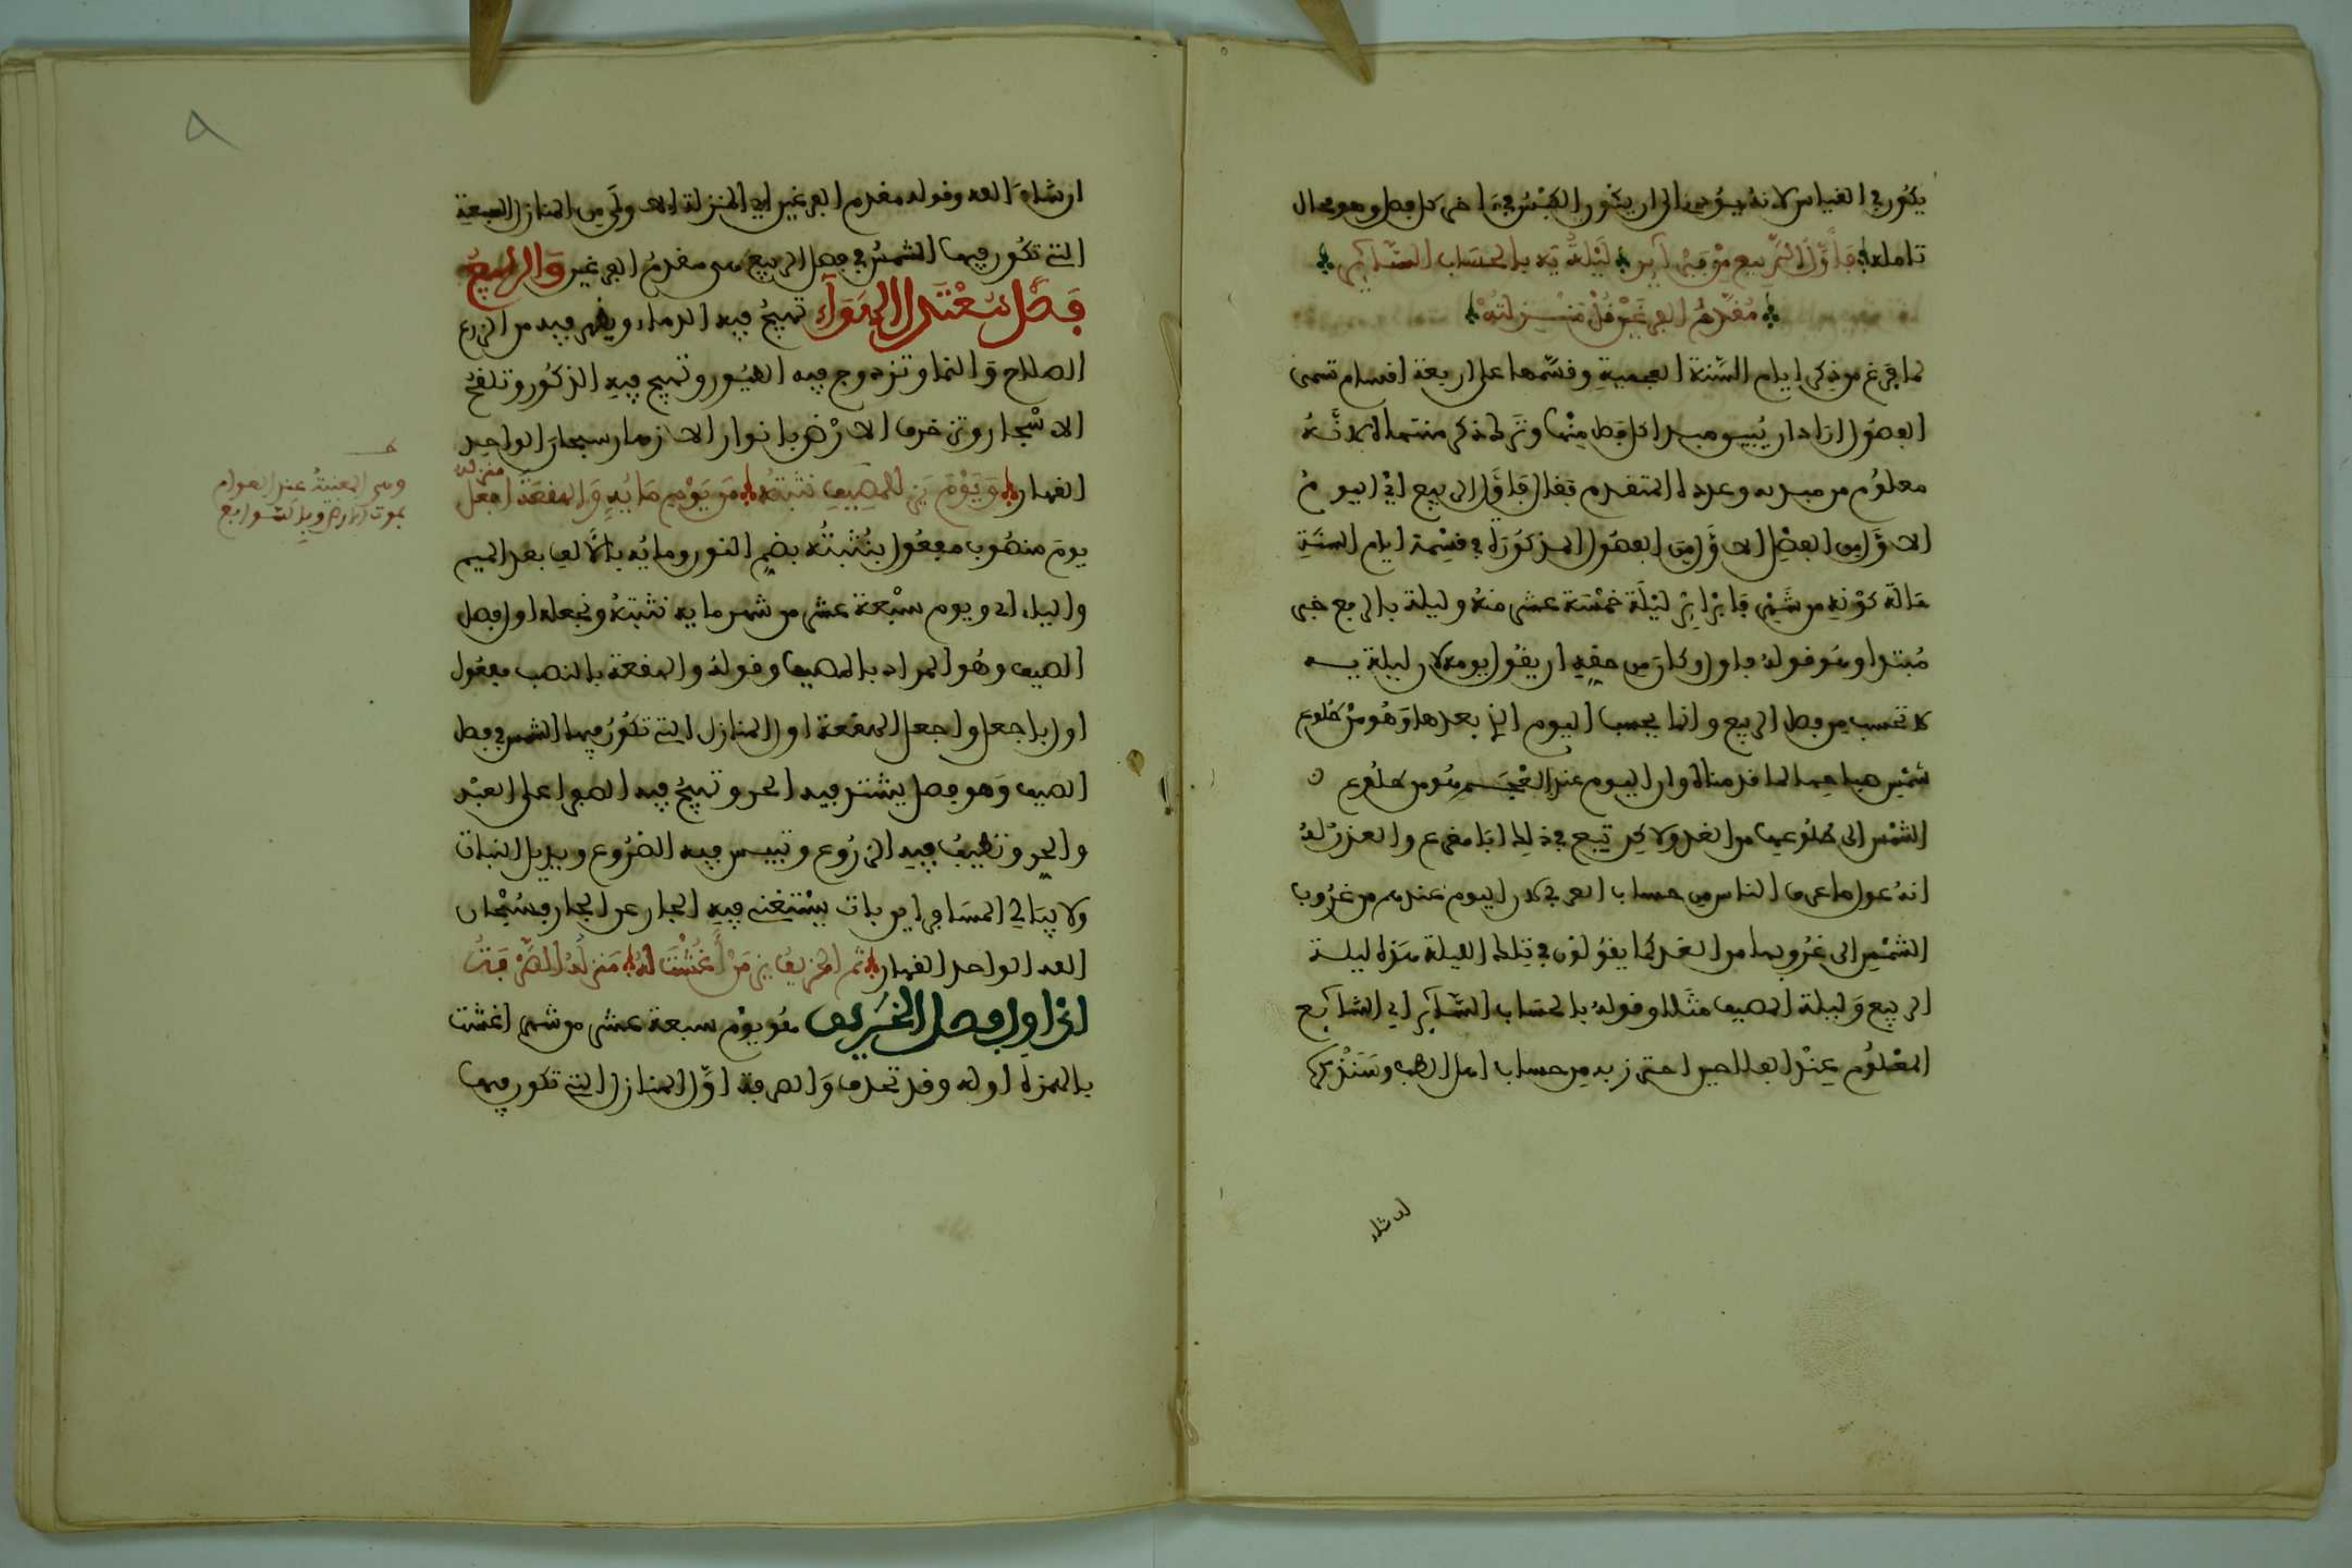 يكون في القياس لانه يؤدي الى ان يكون الكبس في اخر كل فصل وهو محال
تامله فاول الربيع من فبراير ليلة يه بالحساب السائر
مقدم الفرغ قل منزلته
لما فرغ من ذكر ايام السنة العجمية وقسمها على اربعة اقسام تسمى
الفصول اراد ان يبين مبدا كل فصل منها وترك ذكر منتهاه لانه
معلوم من مبدئه وعدده المتقدم فقال فاول الربيع اي اليوم
الاول من الفصل الاول من الفصول المذكورة في قسمة ايام السنة
حالة كونه من شهر فبراير ليلة خمسة عشر منه وليلة بالرفع خبر
مبتدا وهو قوله فاول وكان من حقه ان يقول يومه لان ليلة يه
لا تحسب من فصل الربيع وانما يحسب اليوم الذي بعدها وهو من طلوع
شمس صباحها لما قدمناه وان اليوم عند العجم هو من طلوع
الشمس الى طلوعها من الغد ولاكن تبع في ذلك ابا مقرع والعذر له
انه عول ما عرف الناس من حساب العرب لان اليوم عندهم من غروب
الشمس الى غروبها من الغد كما يقولون في تلك الليلة هذه ليلة
الربيع وليلة المصيف مثلا وقوله بالحساب السائر اي الشائع
المعلوم عند الفلاحين احترز به من حساب اهل الطب وسنذكره
ان شاء
ان شاء الله وقوله مقدم الفرغ اي المنزلة الاولى من المنازل السبعة
التي تكون فيها الشمس في فصل الربيع هي مقدم الفرغ والربيع
فصل معتدل الهواء تهيج فيه الدماء ويظهر فيه من الزرع
الصلاح والنما وتزدوج فيه الطيور وتهيج فيه الذكور وتلقح
الاشجار وتزخرف الارض بانوار الازهار سبحان الواحد
القهار ويوم يز للمصيف نثبته من يوم مايه والهقعة اجعل
منزله
يوم منصوب مفعول بنثبته بضم النون ومايه بالالف بعد الميم
والياء اي ويوم سبعة عشر من شهر مايه نثبته ونجعله اول فصل
الصيف وهو المراد بالمصيف وقوله والهقعة بالنصب مفعول
اول باجعل واجعل الهقعة اول المنازل التي تكون فيها الشمس في فصل
الصيف وهو فصل يشتد فيه الحر وتهيج فيه الصفرا على العبد
والحر وتطيب فيه الزروع وتيبس فيه الضروع ويذبل النبات
ولا يبالي المسافر اين بات يستغني فيه الجار عن الجار فسبحان
الله الواحد القهار ثم الخريف يز من اغشت له منزله الصرفة
اي اول فصل الخريف هو يوم سبعة عشر من شهر اغشت
بالهمزة اوله وقد تحذف والصرفة اول المنازل التي تكون فيها
ط
وهي المعنية عند العوام
بموت الارض وبالتوابع